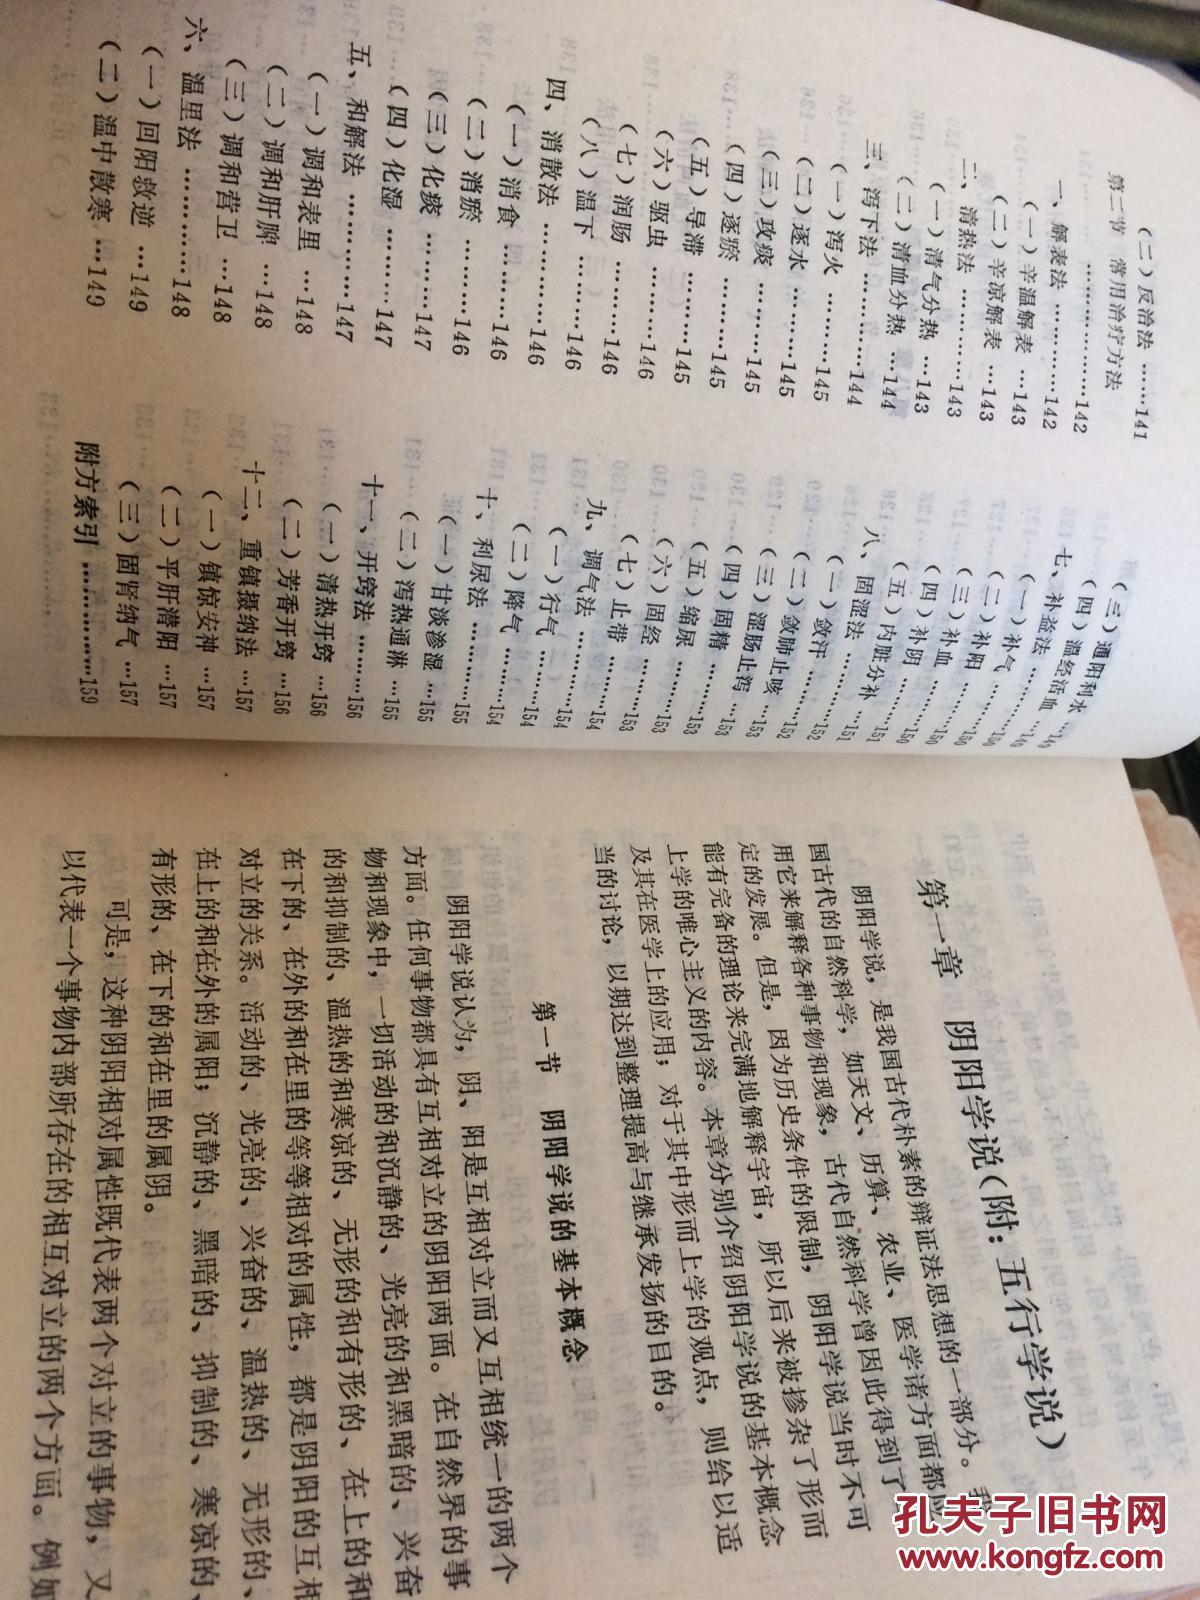 (二)反治法 ……141
第二节 常用治疗方法
………………142
一、解表法 …………142
(一)辛温解表 …143
(二)辛凉解表 …143
二、清热法 …………143
(一)清气分热 …143
(二)清血分热 …144
三、泻下法 …………144
(一)泻火 ………145
(二)逐水 ………145
(三)攻痰 ………145
(四)逐瘀 ………145
(五)导滞 ………145
(六)驱虫 ………146
(七)润肠 ………146
(八)温下 ………146
四、消散法 …………146
(一)消食 ………146
(二)消瘀 ………146
(三)化痰 ………147
(四)化湿 ………147
五、和解法 …………147
(一)调和表里 …148
(二)调和肝脾 …148
(三)调和营卫 …148
六、温里法 …………148
(一)回阳救逆 …149
(二)温中散寒 …149
(三)通阳利水 …149
(四)温经活血 …149
七、补益法 …………149
(一)补气 ………150
(二)补阳 ………150
(三)补血 ………150
(四)补阴 ………150
(五)内脏分补 …151
八、固涩法 …………151
(一)敛汗 ………152
(二)敛肺止咳 …152
(三)涩肠止泻 …153
(四)固精 ………153
(五)缩尿 ………153
(六)固经 ………153
(七)止带 ………153
九、调气法 …………154
(一)行气 ………154
(二)降气 ………154
十、利尿法 …………154
(一)甘淡渗湿 …155
(二)泻热通淋 …155
十一、开窍法 ………156
(一)清热开窍 …156
(二)芳香开窍 …156
十二、重镇摄纳法 …157
(一)镇惊安神 …157
(二)平肝潜阳 …157
(三)固肾纳气 …157
附方索引 ……………159
第一章 阴阳学说(附:五行学说)
阴阳学说,是我国古代朴素的辩证法思想的一部分。我
国古代的自然科学,如天文、历算、农业、医学诸方面都
用它来解释各种事物和现象,古代自然科学曾因此得到了
定的发展。但是,因为历史条件的限制,阴阳学说当时不可
能有完备的理论来完满地解释宇宙,所以后来被掺杂了形而
上学的唯心主义的内容。本章分别介绍阴阳学说的基本概念
及其在医学上的应用;对于其中形而上学的观点,则给以适
当的讨论,以期达到整理提高与继承发扬的目的。
第一节 阴阳学说的基本概念
阴阳学说认为,阴、阳是互相对立而又互相统一的两个
方面。任何事物都具有互相对立的阴阳两面。在自然界的事
物和现象中,一切活动的和沉静的、光亮的和黑暗的、兴奋
的和抑制的、温热的和寒凉的、无形的和有形的、在上的和
在下的、在外的和在里的等等相对的属性,都是阴阳的互相
对立的关系。活动的、光亮的、兴奋的、温热的、无形的、
在上的和在外的属阳;沉静的、黑暗的、抑制的、寒凉的、
有形的、在下的和在里的属阴。
可是,这种阴阳相对属性既代表两个对立的事物,又
以代表一个事物内部所存在的相互对立的两个方面。例如
孔夫子旧书网
www.kongfz.com